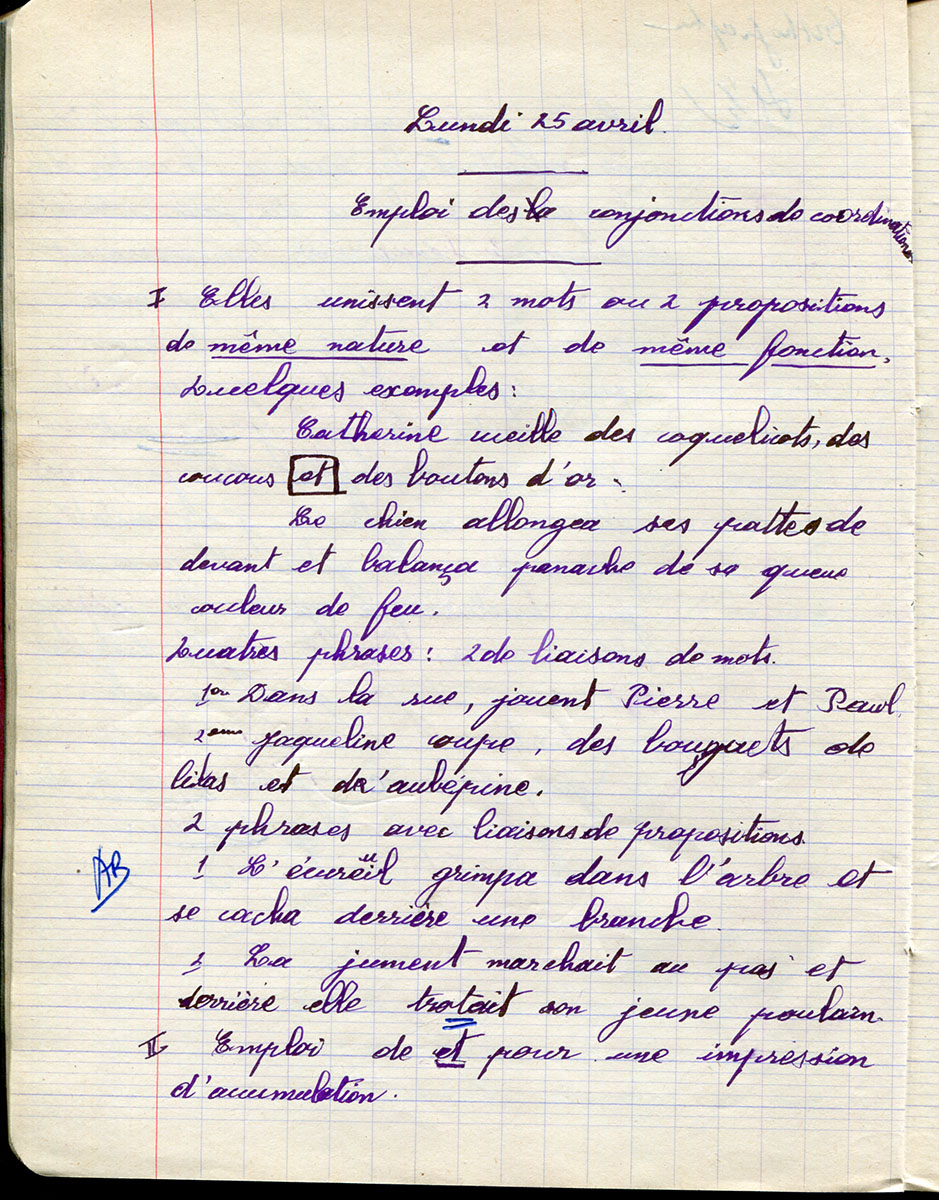 Lundi 25 avril.
Emploi des conjonctions de coordinations
I Elles unissent 2 mots ou 2 propositions
de même nature et de même fonction.
Quelques exemples :
Catherine cueille des coquelicots, des
coucous et des boutons d'or.
Le chien allongea ses pattes de
devant et balança panache de sa queue
couleur de feu.
Quatres phrases : 2 de liaisons de mots.
1er Dans la rue, jouent Pierre et Paul.
2eme Jaqueline coupe, des bouquets de
lilas et d'aubépine.
2 phrases avec liaisons de propositions.
AB
1 L'écureuil grimpa dans l'arbre et
se cacha derrière une branche.
2 La jument marchait au pas et
derrière elle trotait son jeune poulain.
II Emploi de et pour une impression
d'accumulation.